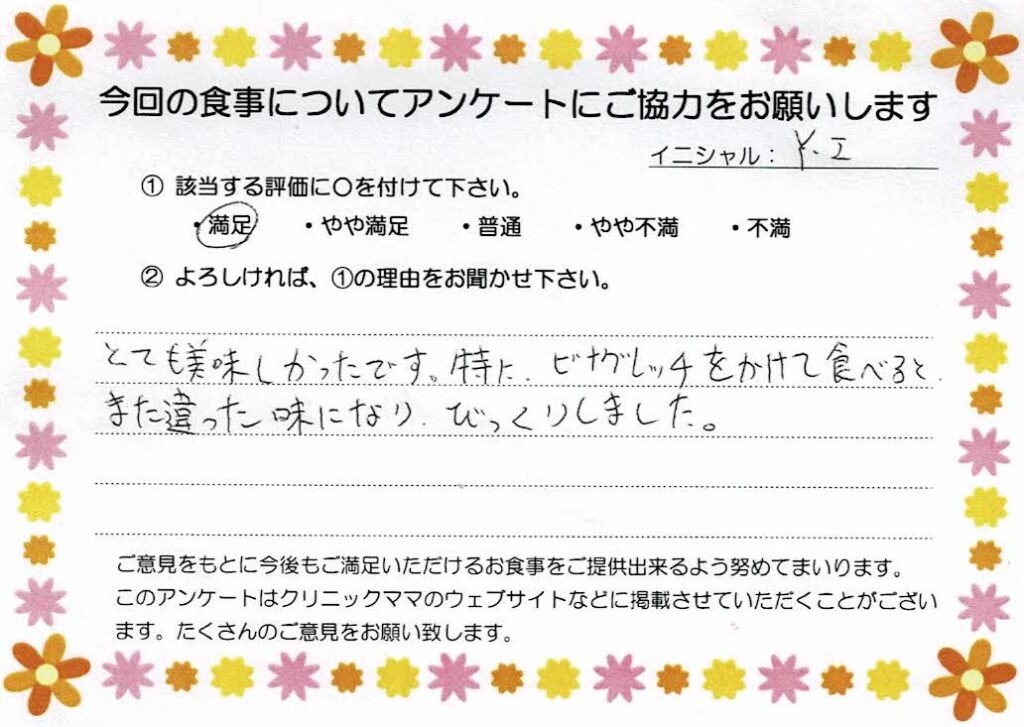 今回の食事についてアンケートにご協力をお願いします
イニシャル： Y.I
① 該当する評価に〇を付けて下さい。
・満足 ・やや満足 ・普通 ・やや不満 ・不満
② よろしければ、①の理由をお聞かせ下さい。
とても美味しかったです。特に、ビナグレッチをかけて食べると、
また違った味になり、びっくりしました。
ご意見をもとに今後もご満足いただけるお食事をご提供出来るよう努めてまいります。
このアンケートはクリニックママのウェブサイトなどに掲載させていただくことがござい
ます。たくさんのご意見をお願い致します。